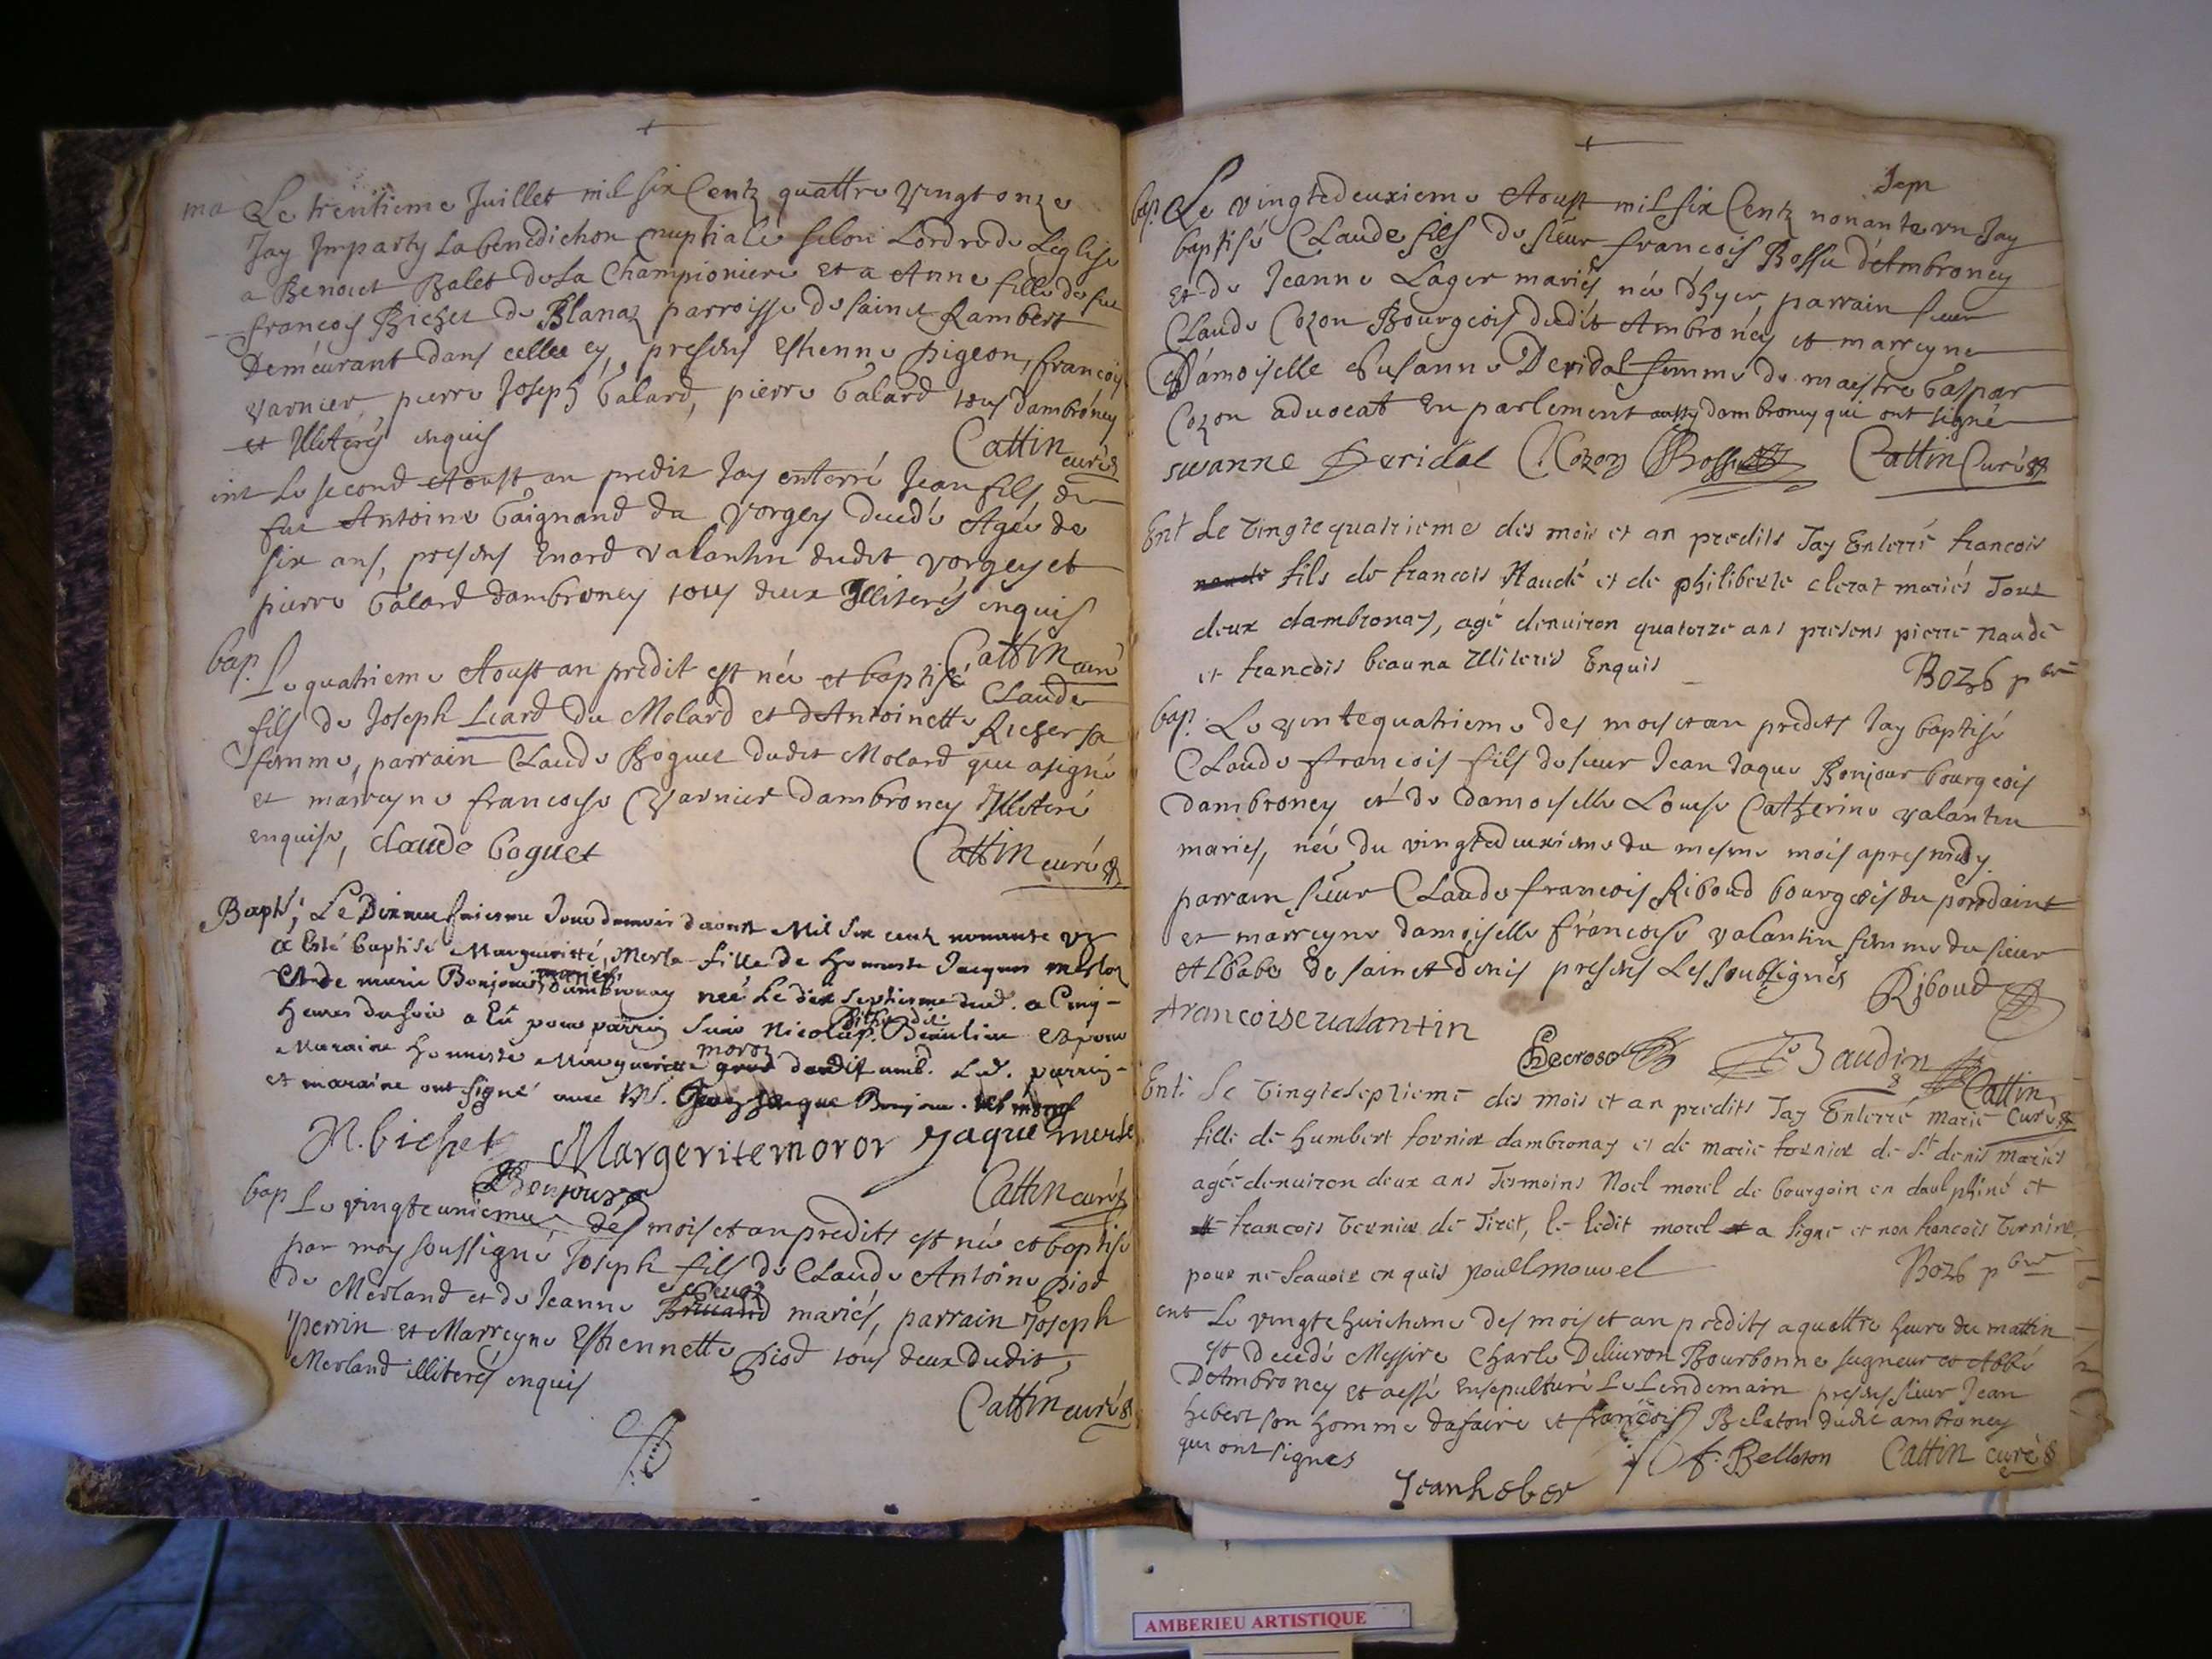 ma Le trentieme Juillet mil six Centz quattre vingt onze
Jay Imparty La benediction nuptiale selon Lordre de Leglise
a Benoict Balet de La Championiere et a Anne fille de feu
francois Bichet de Blanaz parroisse de sainct Rambert
Demeurant dans celle cy, presens Esthenne Pigeon, francois
varnier, pierre Joseph Galard, pierre Galard tous dambroney
et Illiterés enquis
Cattin curé
ent Le second Aoust an predit Jay enterré Jean fils de
feu Antoine Gaignand du vorgey decedé Agée de
six ans, presens Enard valantin dudit vorgey et
pierre Galard dambroney tous deux Illiterés enquis
Cattin curé
bap. Le quatrieme Aoust an predit est née et baptisé Claude
fils de Joseph Liard du Molard et dAntoinette Richer sa
femme, parrain Claude Boguet dudit Molard qui a signé
et marreyne francoise Varnier dambroney Illiteré
enquise, claude boguet
Cattin curé
Bapt; Le Dixneufvieme Jour du mois daoust Mil Six cent nonante un
a Esté baptisé Margueritte Merle fille de honneste Jacques merloz
Et de marie Bonjour mariés dambronay neé Le dix septieme dud. a Cinq
heures du soir a Eu pour parrin Nicolas Beaulieu Et pour
Maraine honneste Marguerite moroz dudit amb. Led. parrin
et maraine ont signé avec
N. bichet Margeritemoror yaque merle
Bonjour
Cattin curé
bap Le vingteunieme des mois et an predits est née et baptisé
par moy soussigné Joseph fils de Claude Antoine Piod
de Merland et de Jeanne mariés, parrain Joseph
perrin et Marreyne Esthennette Piod tous deux dudit
Merland illiterés enquis
Cattin curé
Sepn
bap. Le vingtedeuxieme Aoust mil six Centz nonante vn Jay
baptisé Claude fils de sieur francois Bossu d'Ambroney
et de Jeanne Lager mariés née d'hyer parrain sieur
Claude Cozon Bourgeois dudit Ambroney et marreyne
Damoiselle Susanne Deridal femme de maistre Gaspar
Cozon advocat En parlement aussy dambroney qui ont signé
susanne Deridal C. Cozon Bossu Cattin Curé
Ent Le vingtequatrieme des mois et an predits Jay Enterré francois
naude fils de francois Naudé et de philiberte clerat mariés Tous
deux dambronay, agé denuiron quatorze ans presens pierre naude
et francois beauna Illiterés Enquis
Bozb pbre
bap. Le vintequatrieme des mois et an predits Jay baptisé
Claude francois fils de sieur Jean Jaque Bonjour bourgeois
dambroney et de damoiselle Louise Catherine valantin
mariés, née du vingtedeuxieme du mesme mois apres midy.
parrain sieur Claude francois Riboud bourgeois du pondains
et marreyne damoiselle francoise valantin femme du sieur
Albabe de sainct denis presens Les soubsignés
Riboud
francoise valantin
Decroso Baudin Cattin
Curé
Ent: Le vingteseptieme des mois et an predits Jay Enterré marie
fille de humbert fornier dambronay et de marie fornier de St denis mariés
agée denuiron deux ans Tesmoins Noel morel de bourgoin en daulphiné et
francois vernier de Tiret, le ledit morel a signe et non francois vernier
pour ne scauoir enquis nouel mouvel
Bozb pbre
ent Le vingtehuictieme des mois et an predits a quattre heure du mattin
est decedé Messire Charle Deliuron Bourbonne seigneur et Abbé
DAmbroney et a esté ensepulturé Le Lendemain presens sieur Jean
hebert son homme dafaire et francois Belaton dudit ambroney
qui ont signes
f. Bellaton Cattin curé
Jean heber
AMBERIEU ARTISTIQUE